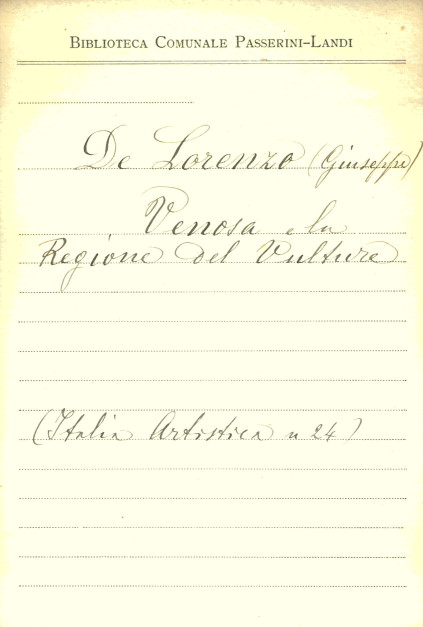 Biblioteca Comunale Passerini-Landi
De Lorenzo (Giuseppe)
Venosa e la
Regione del Vulture
(Italia Artistica n 24)